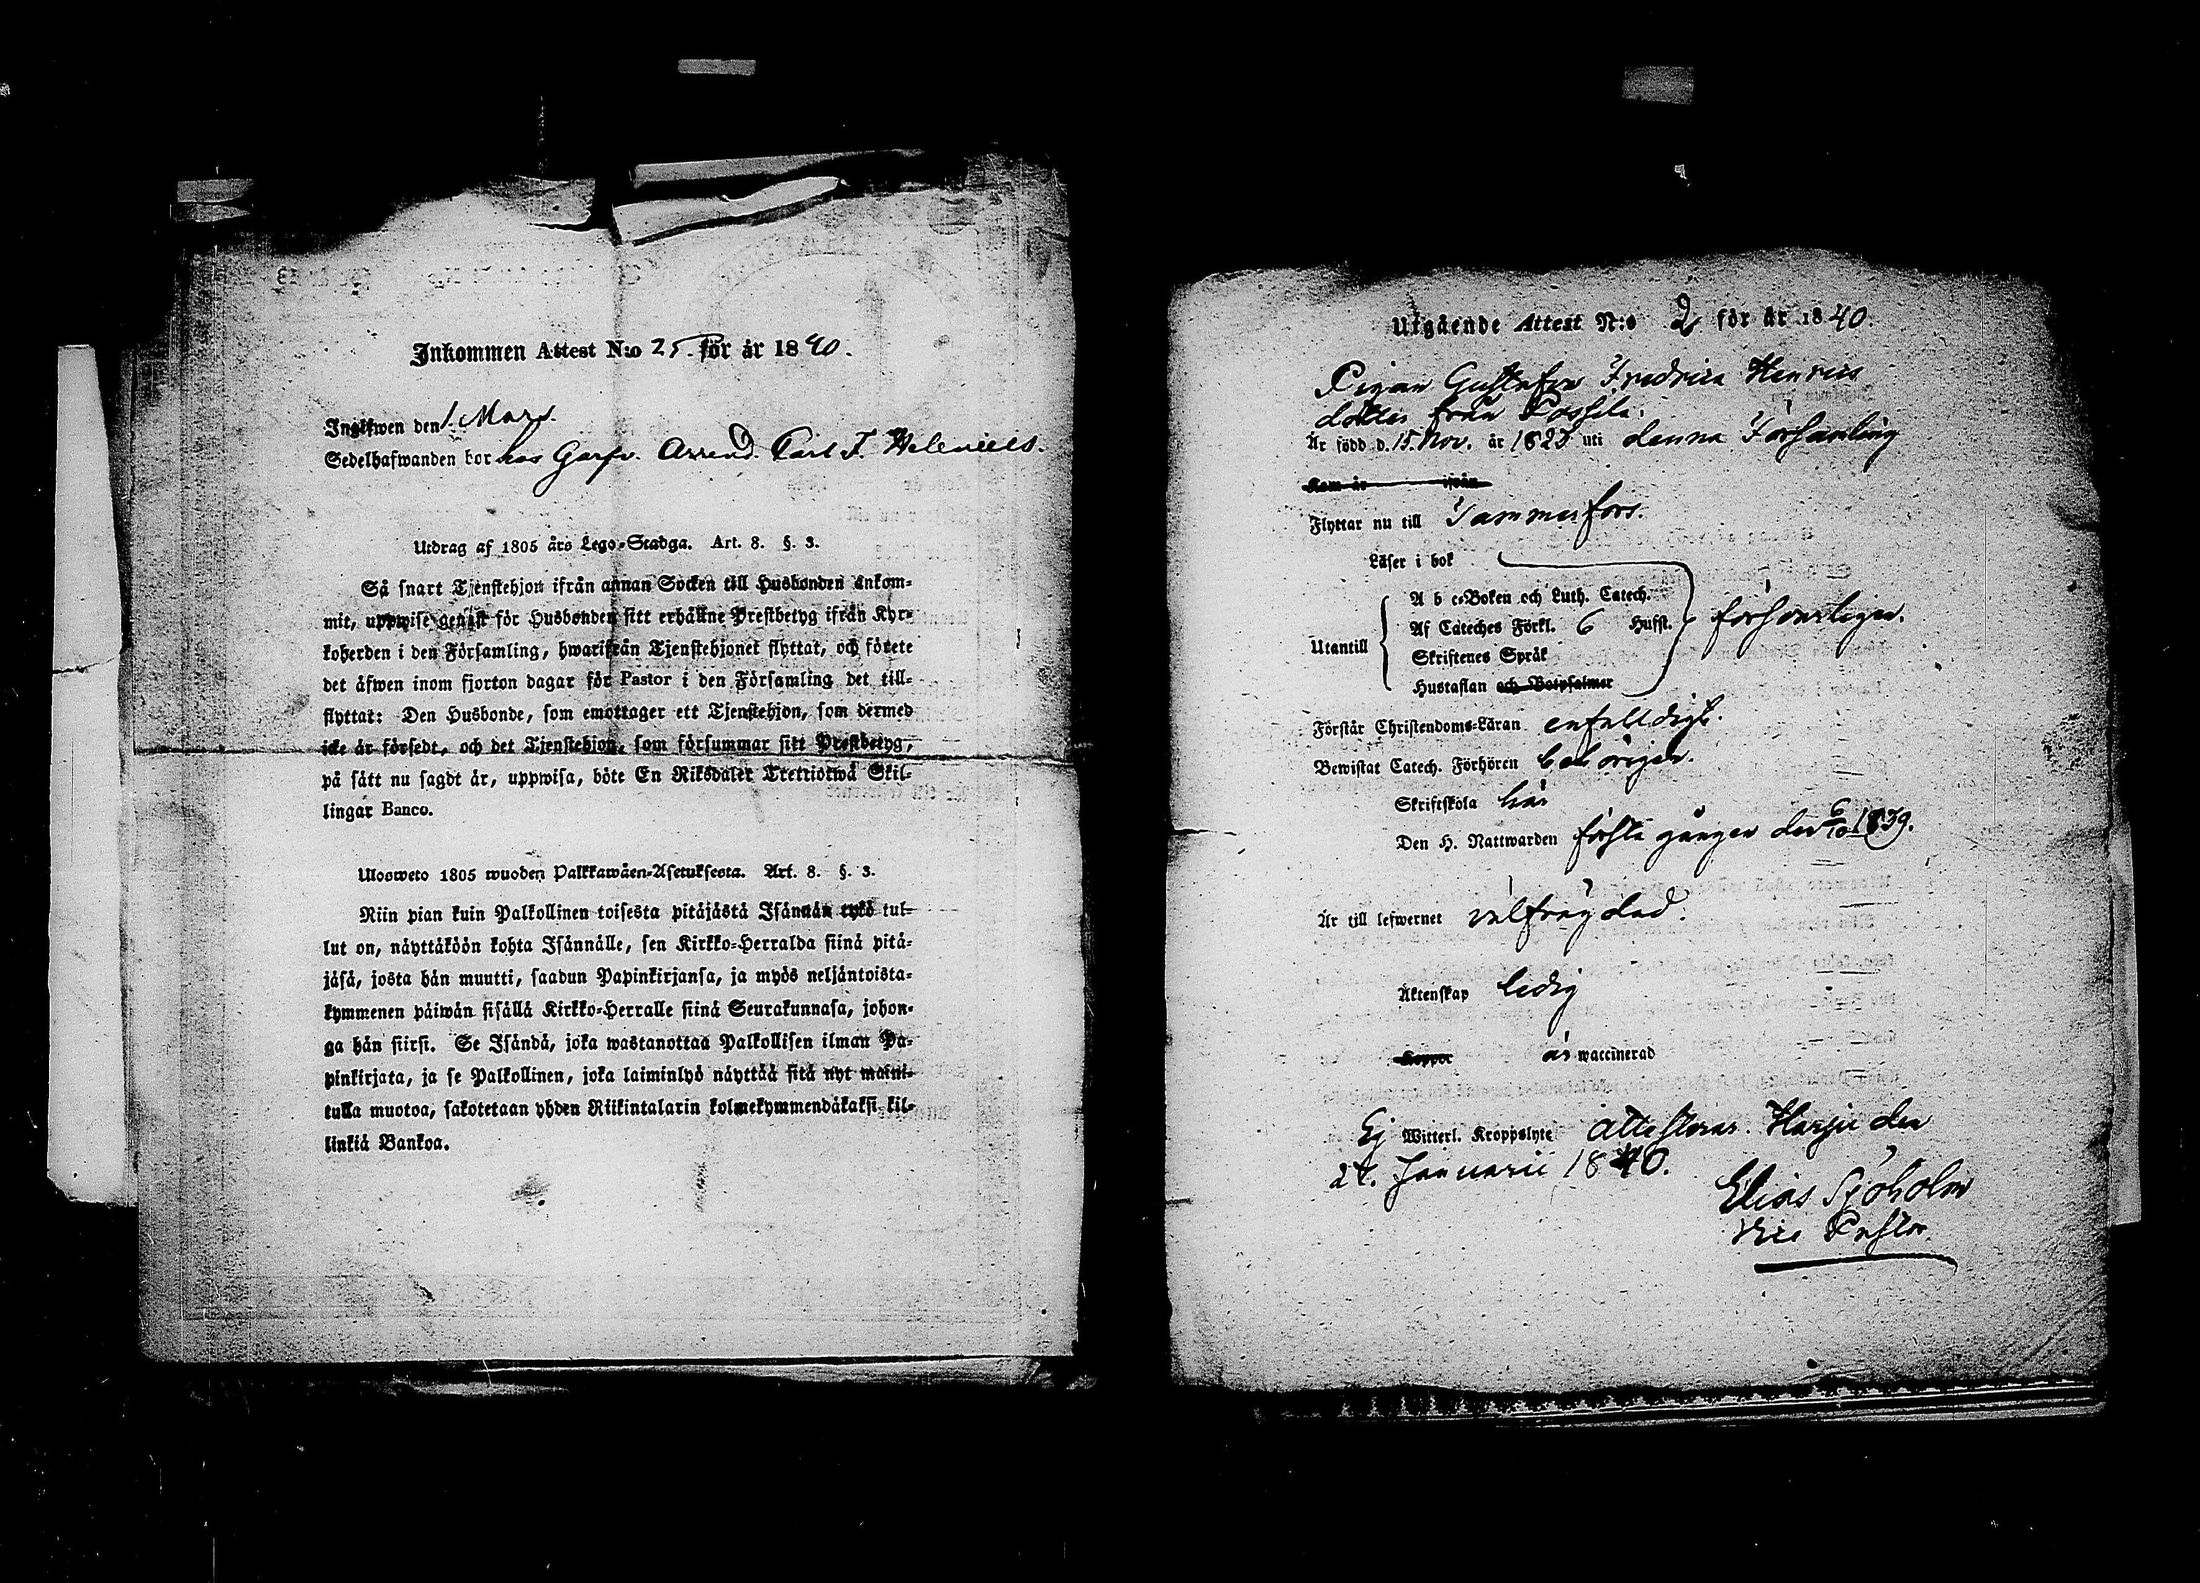 Inkommen Attest N:o 25. för år 1840.
Ingifwen den 1. Mars.
Sedelhafwanden bor hos Garfv. Arrend. Carl F. Helenius.
Utdrag af 1805 års Lego-Stadga. Art. 8. §. 3.
Så snart Tjenstehjon ifrån annan Socken till Husbonden ankom-
mit, uppwise genast för Husbonden sitt erhållne Prestbetyg ifrån Kyr-
koherden i den Församling, hwarifrån Tjenstehjonet flyttat, och förete
det äfwen inom fjorton dagar för Pastor i den Församling det till-
flyttat: Den Husbonde, som emottager ett Tjenstehjon, som dermed
icke är försedt, och det Tjenstehjon, som försummar sitt Prestbetyg,
på sätt nu sagdt är, uppwisa, böte En Riksdaler Trettiotwå Skil-
lingar Banco.
Ulosweto 1805 wuoden Palkkawäen-Asetuksesta. Art. 8. §. 3.
Niin pian kuin Palkollinen toisesta pitäjästä Isännän tykö tul-
lut on, näyttäköön kohta Isännälle, sen Kirkko-Herralda siinä pitä-
jäsä, josta hän muutti, saadun Papinkirjansa, ja myös neljäntoista-
kymmenen päiwän sisällä Kirkko-Herralle siinä Seurakunnasa, johon-
ga hän siirsi. Se Isändä, joka wastanottaa Palkollisen ilman Pa-
pinkirjata, ja se Palkollinen, joka laiminlyö näyttää sitä nyt maini-
tulla muotoa, sakotetaan yhden Riikintalarin kolmekymmendäkaksi kil-
linkiä Bankoa.
Utgående Attest N:o 2 för år 1840.
Pigan Gustafva Fredrica Henrics
dotter från Possila.
Är född d. 15. Nov. år 1823 uti denna Församling
Kom år ifrån
Flyttar nu till Tammerfors.
Läser i bok
A b c-Boken och Luth. Catech.
Af Cateches Förkl. 6 Hufst. försvarligen.
Utantill
Skriftenes Språk
Hustaflan och Botpsalmer
Förstår Christendoms-Läran enfalldigt.
Bewistat Catech. Förhören behörigen.
Skriftskola här
Den H. Nattwarden första gången den 6/10 1839.
Är till lefwernet välfrägdad.
Äktenskap ledig
Koppor är waccinerad
Ej Witterl. Kroppslyte attesterar. Harju den
24. Januarii 1840.
Elias Sjöholm
Vice Pastor.